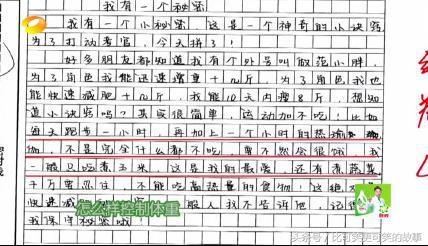 我有一个秘密
我有一个小秘密,这是一个神奇的小诀窍,
为了打动考官,今天拼了!
好多朋友都知道我有个外号叫敬范小胖,
为了角色我能迅速增重十几斤,为了角色我也
能快速减肥十几斤,我能10天内瘦8斤,想知
道小诀窍吗?其实很简单,运动加不吃!比如
每天跑步一小时,再加上一个小时的热瑜
物,不是完全什么都不吃,要不然会很饿,我
一般只吃煮玉米,这是我的最爱,还有煮蔬菜
千万要忍住,不能吃高热量的食物!这绝
快速减 般人我不告诉他,记得
我保守秘密哦!
怎么样控制体重
头条号/比可笑更可笑的故事